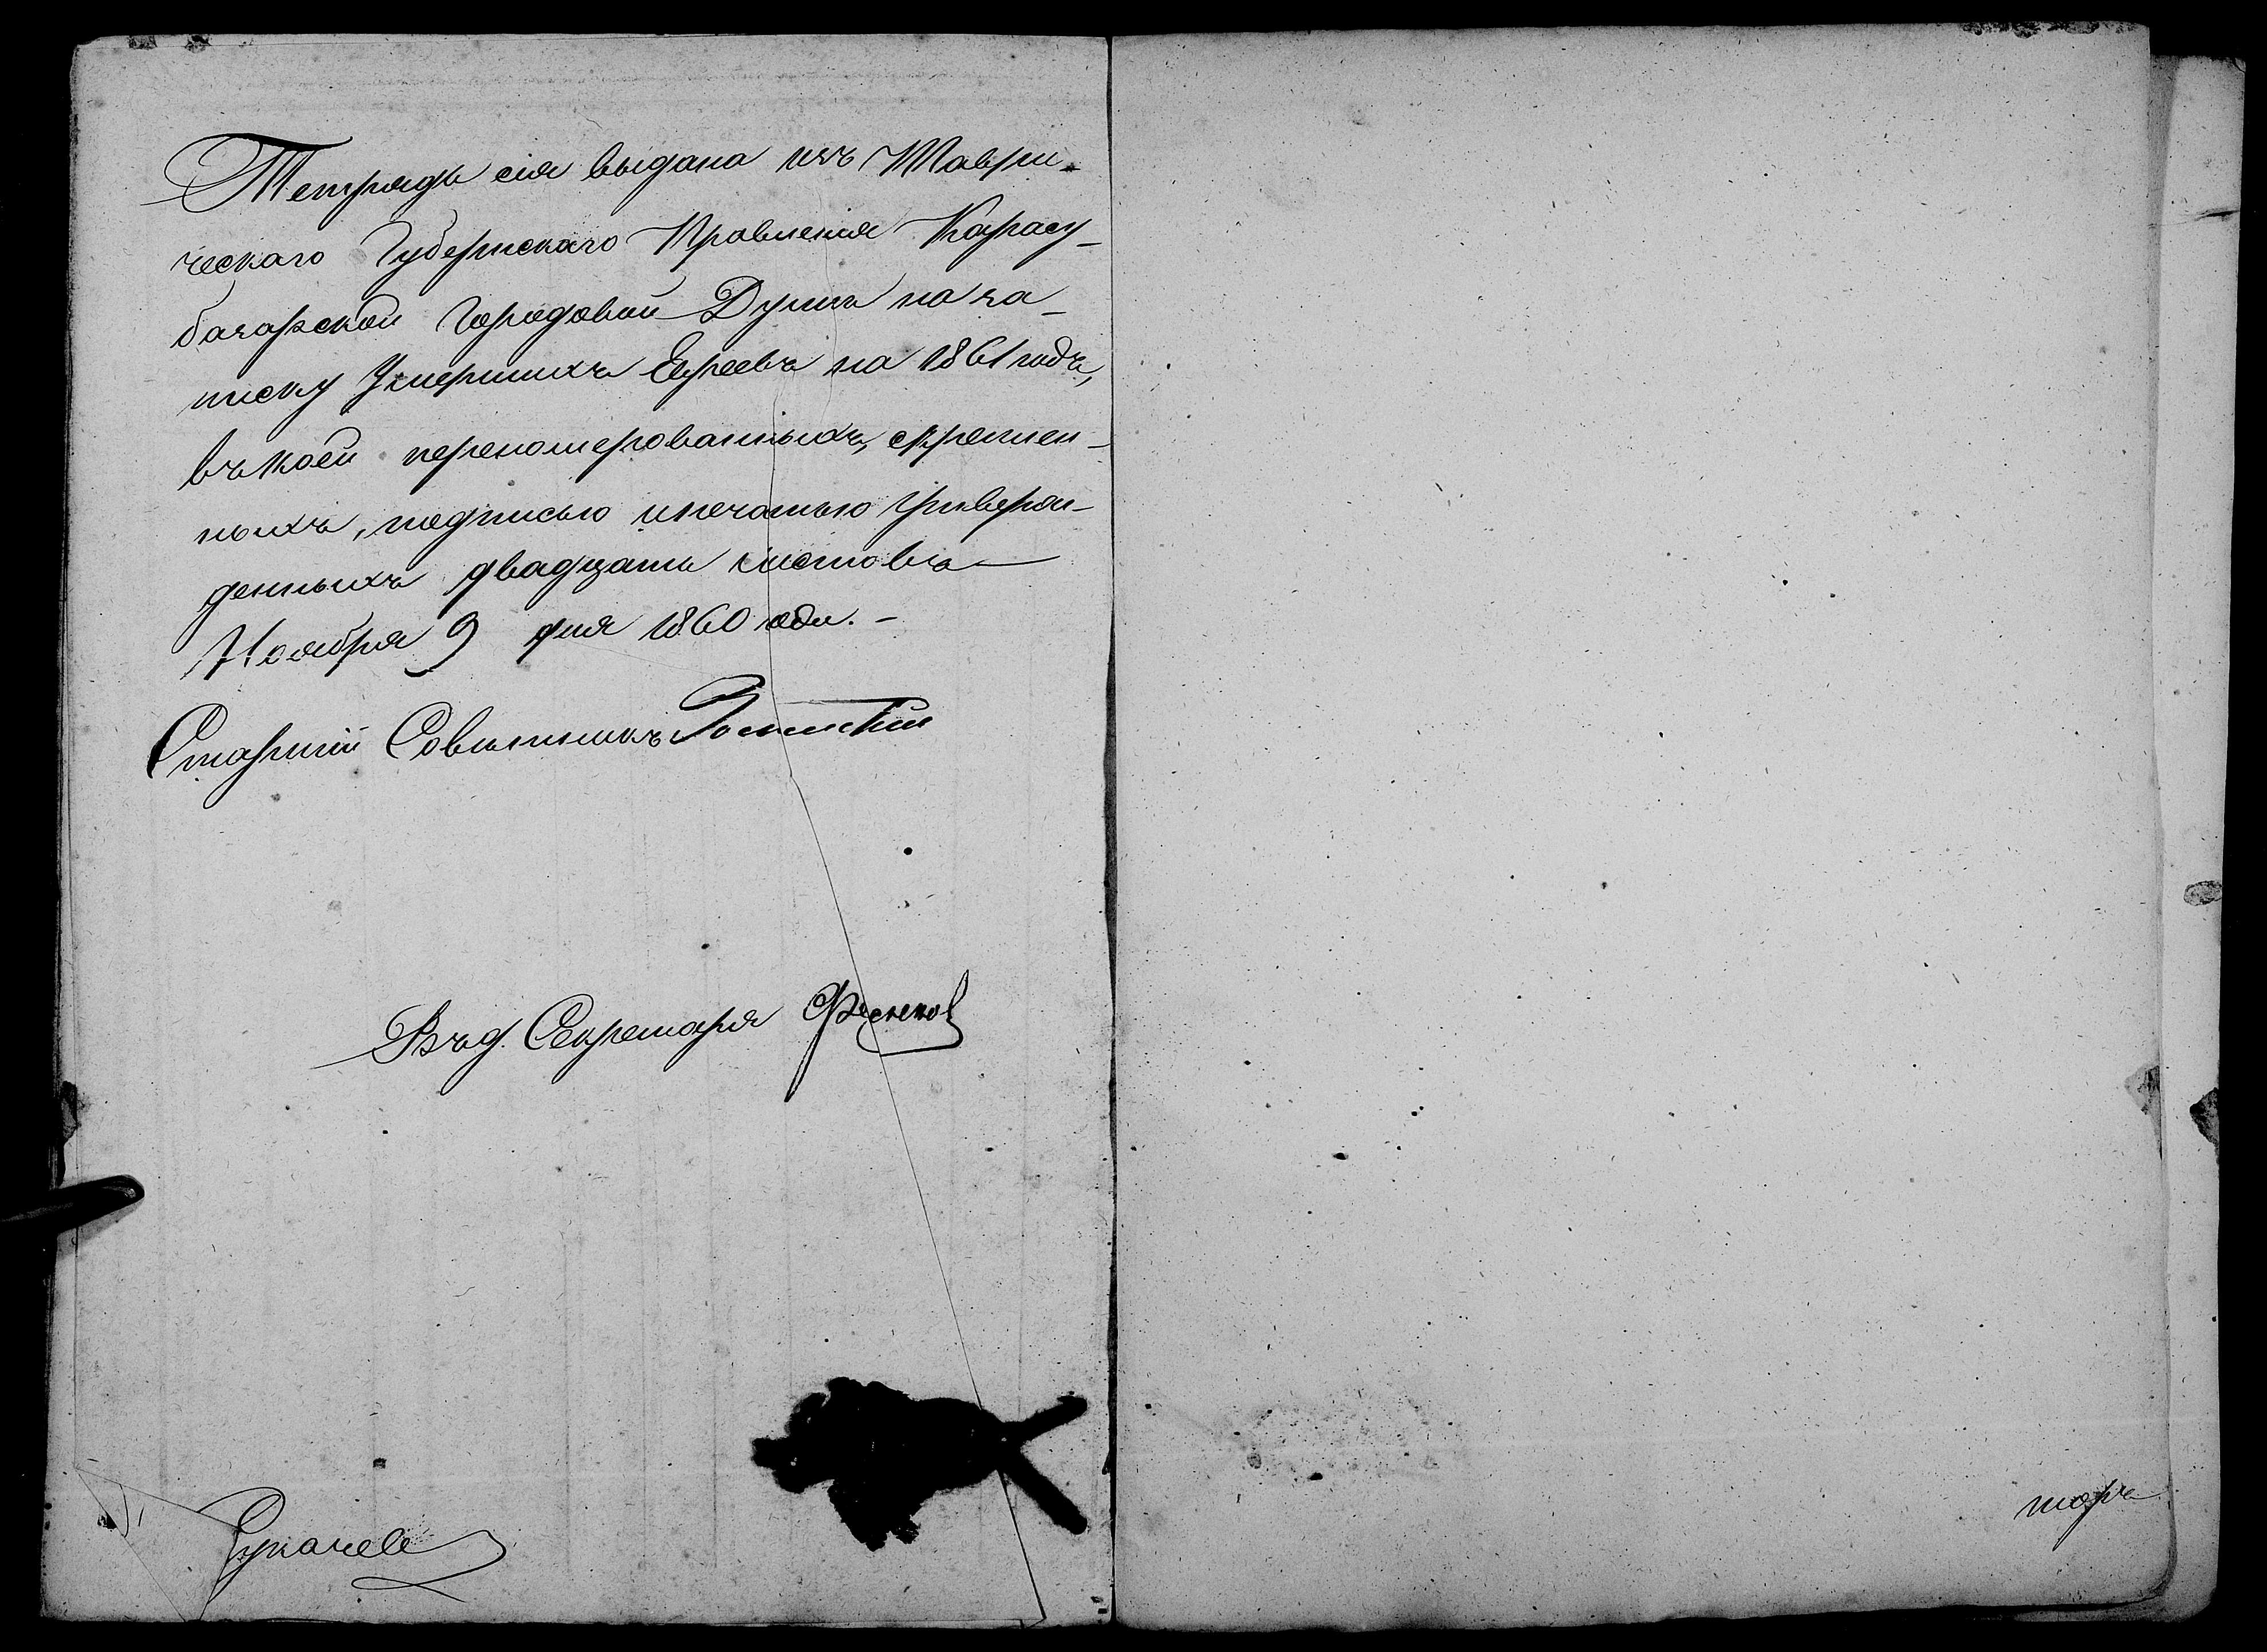 Тетрадь сія выдана изъ Таври-
ческаго Губернскаго Правленія Карасу-
базарской Городовой Думѣ на за-
писку Умершихъ Евреевъ на 1861 годъ,
въ коей переномерованныхъ, скреплен-
ныхъ, подписью и печатью утверж-
денныхъ двадцать листовъ
Ноября 9 дня 1860 года.-
Старшій Совѣтникъ
Въ д. Секретаря
торъ